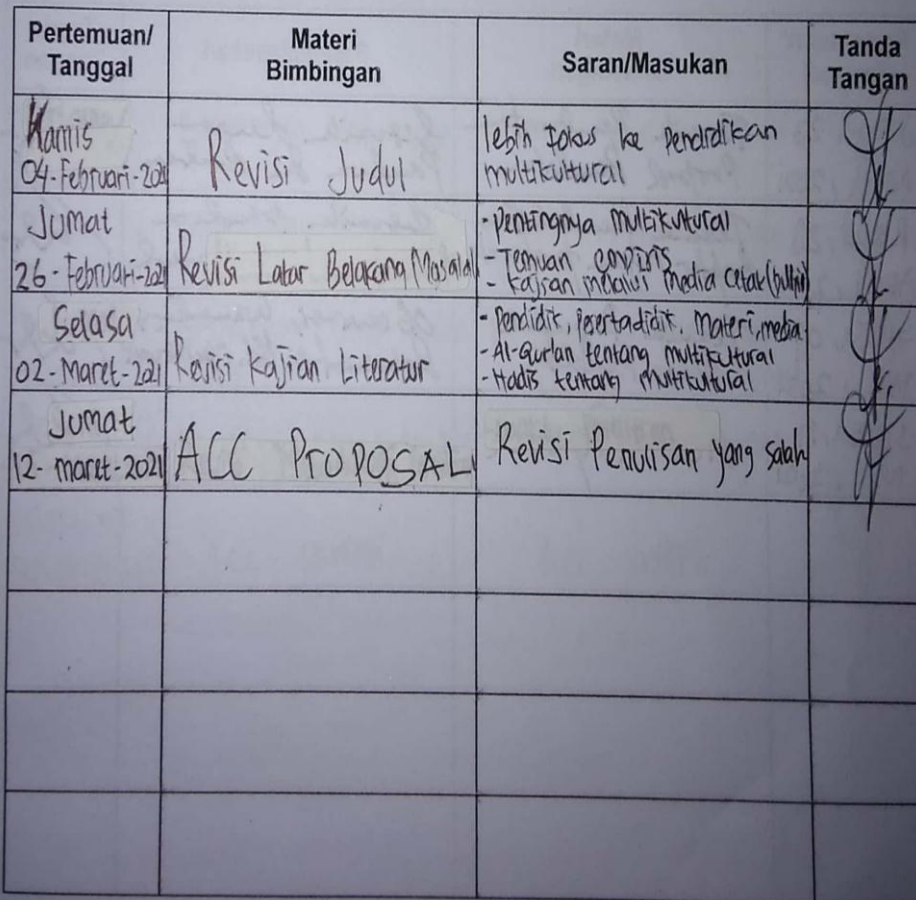 Pertemuan/
Tanggal
Materi
Bimbingan
Saran/Masukan
Tanda
Tangan
Kamis
04-Februari-2021
Revisi Judul
lebih fokus ke Pendidikan
multikultural
Jumat
26-Februari-2021
Revisi Latar Belakang Masalah
- Pentingnya multikultural
- Temuan empiris
- Kajian melalui media cetak
Selasa
02-Maret-2021
Revisi Kajian Literatur
- Pendidik, Peserta didik, Materi, media
- Al-Qur'an tentang multikultural
- Hadis tentang multikultural
Jumat
12-maret-2021
ACC PROPOSAL
Revisi Penulisan yang salah